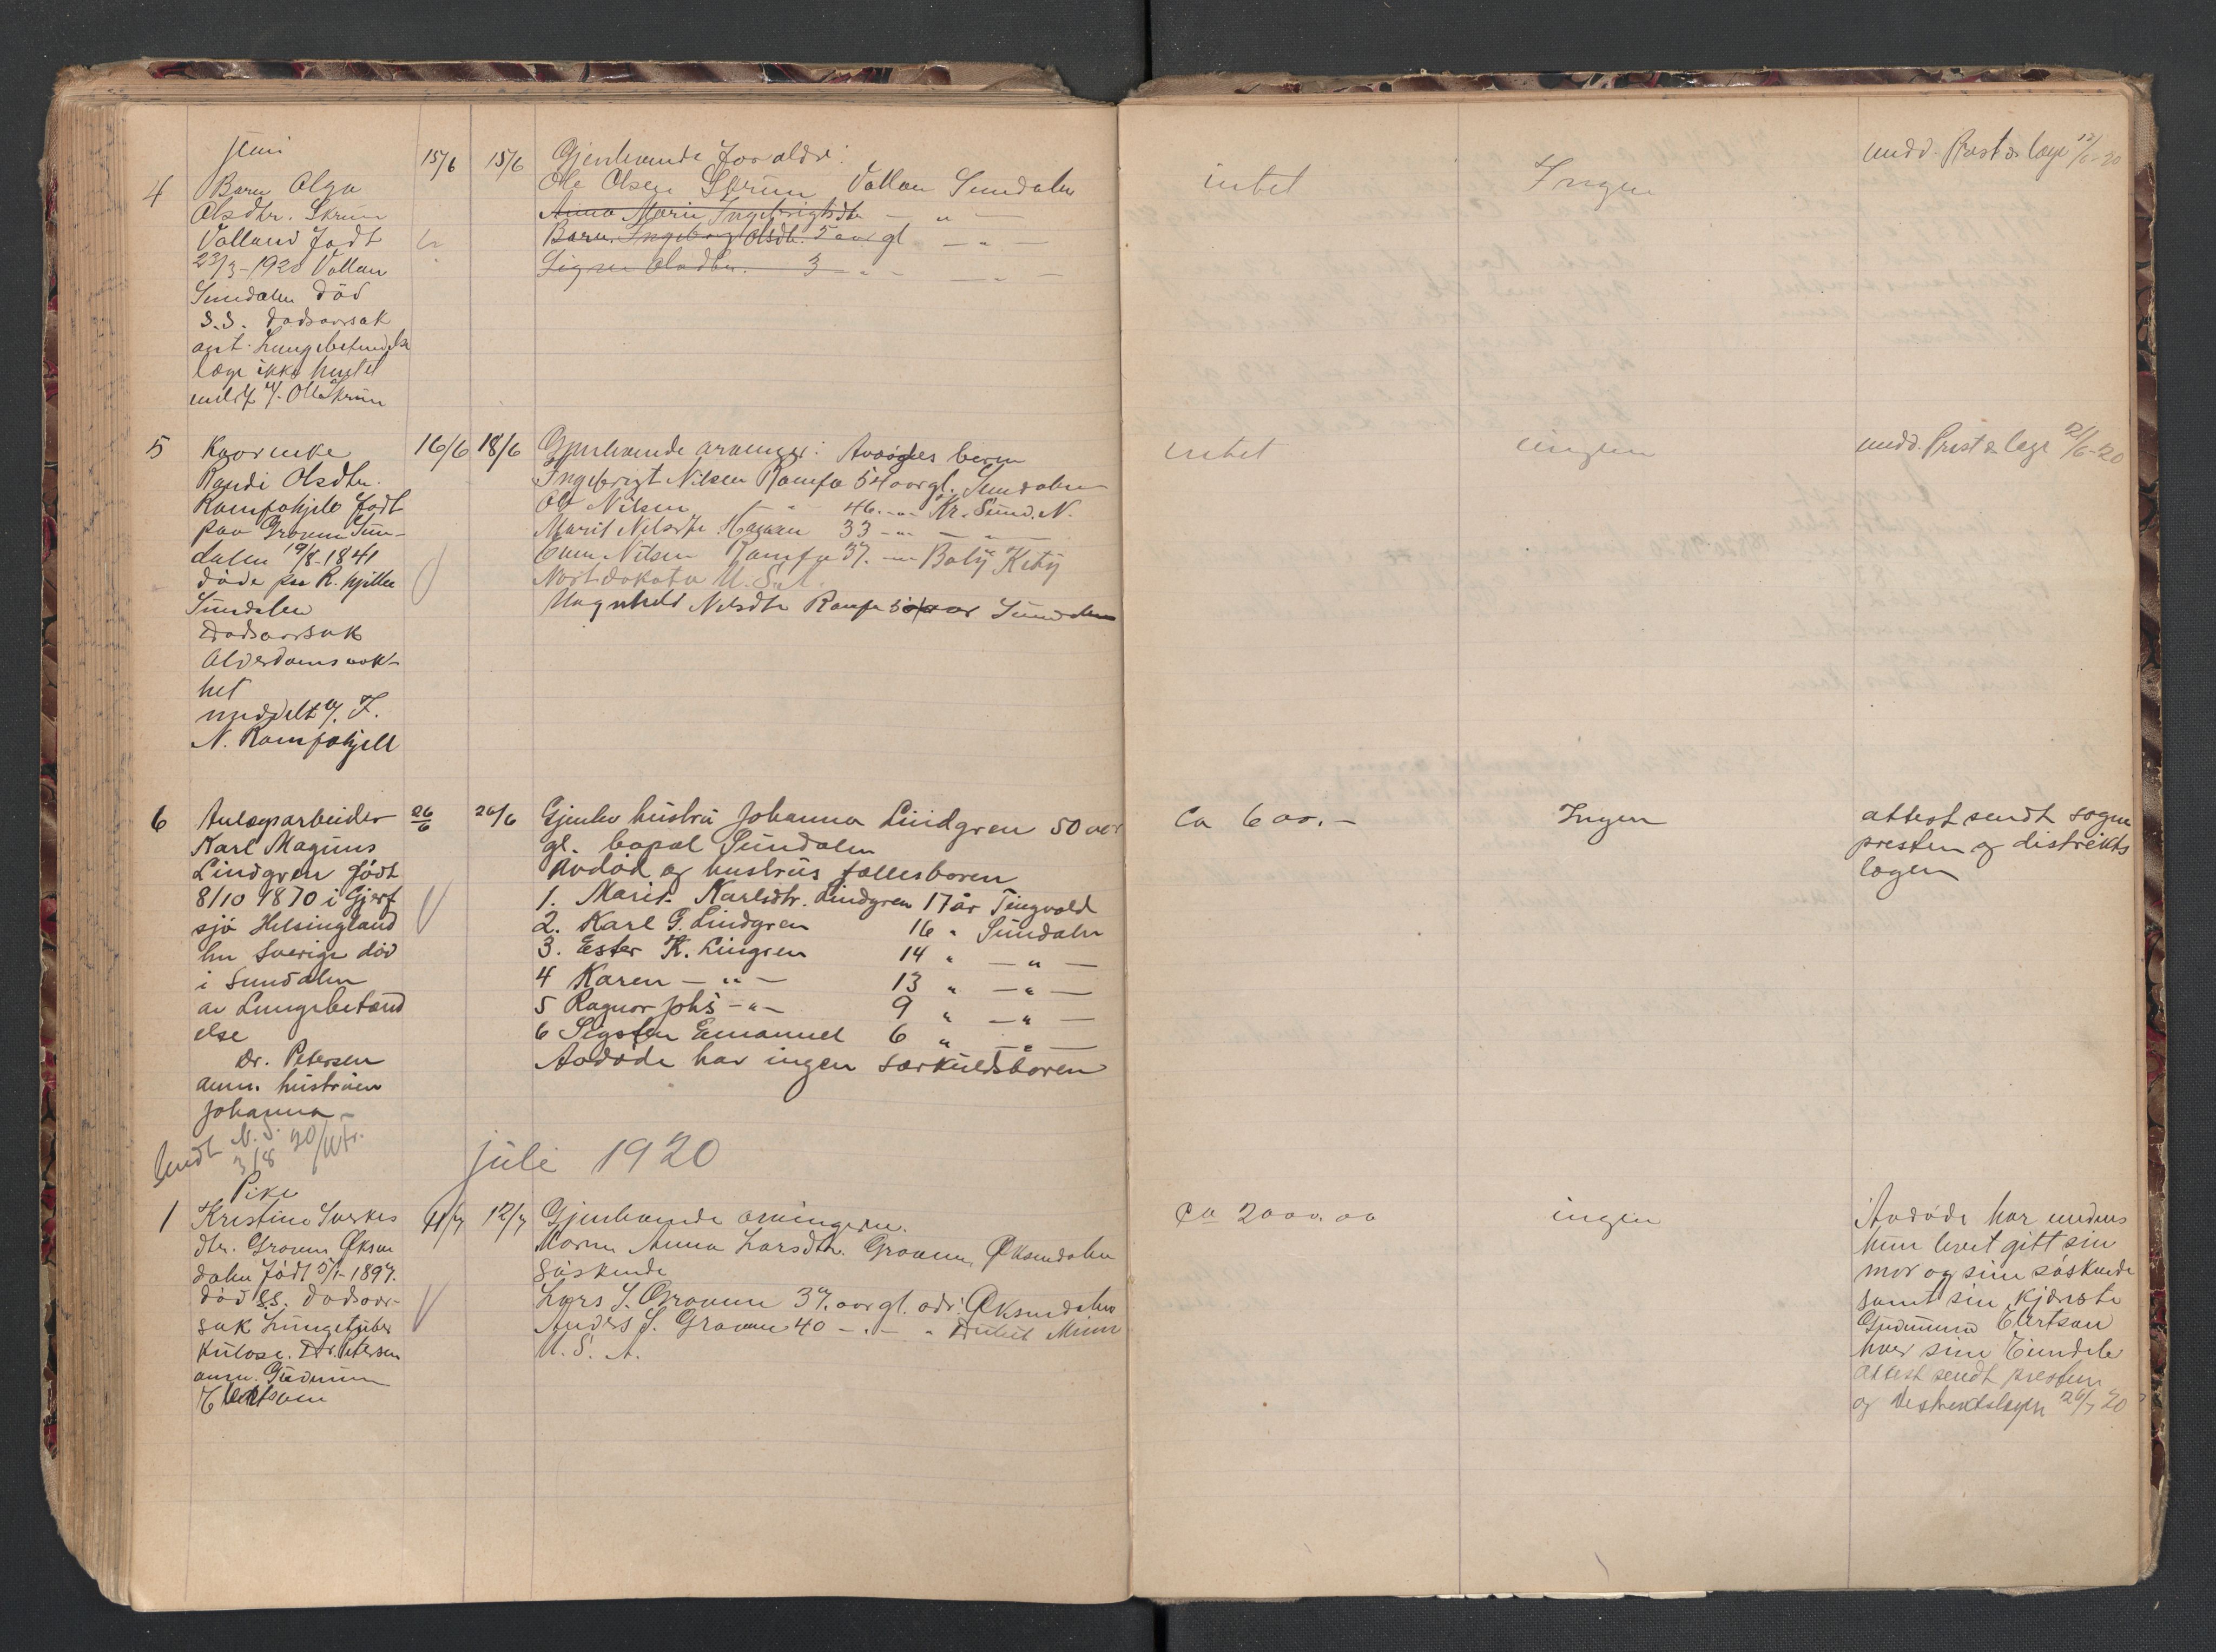 juni
4 Barn Olga
Olsdtr. Skrum
Valland Født
23/3-1920 Vollan
Sundalen död
s.s. dødsaarsak
Lungebetendelse
læge ikke hentet
Skrum
15/6 15/6 Gjenlevende Foræld
Ole Olsen Skrum Vollan Sundalen
Anna Marie Ingebrigtsdtr — „ —
Barn. Ingeborg Olsdtr. 5 aar gl — „ —
Signe Olsdtr. 3 „ — „ —
intet Ingen medd. Prest & læge 12/6-20
5 Kaarenke
Randi Olsdtr.
Ramfohjell Født
paa Gravem Sun-
dalen 19/8-1841
döde paa R.hjillen
Sundalen
Dødsaarsak
Alderdomsvak-
het
meddelt af. I.
N. Ramfohjell
16/6 18/6 Gjenlevende arvinger: Avdødes børn
Ingebrigt Nilsen Ramfo 54 aar gl. Sundalen
Ole Nilsen — „ 46 -„- Kr. Sund. N.
Marit Nilsdtr. Hagen 33 -„- — „ —
Even Nilsen Ramfo 37. -„- Baly Kity
Nort dakota U.S.A.
Magnhild Nilsdtr Ramfo 50 aar Sundalen
intet ingen medd. Prest & læge 21/6-20
6 Anlægsarbeider
Karl Magnus
Lindgren født
8/10 1870 i Gjerf
sjö Helsingland
len Sverige død
i Sundalen
av Lungebetænd
else
Dr. Petersen
anm. hustruen
Johanna –
26/6 26/6 Gjenlev hustru Johanna Lindgren 50 aar
gl. bopæl Sundalen
Avdöd og hustrus fællesbørn
1. Marie Karlsdtr. Lindgren 17 år Tingvold
2. Karl G. Lindgren 16 „ Sundalen
3. Ester K. Lingren 14 „ — „ —
4 Karen — „ — 13 „ — „ —
5 Ragnar Johs — „ — 9 „ — „ —
6 Sigsten Emanuel 6 „ — „ —
Avdöde har ingen særkuldsbörn
Ca 600.– Ingen attest sendt sogne
presten og distrikts
lægen
Sendt N.S.
3/8 20
juli 1920
Pike
1 Kristine Sverkes
dtr. Gravem Øksen
dalen Født 5/1-1897.
död s.s. dødsaar-
sak Lungetuber
kulose. Dr. Petersen
anm. Gudmun
Elertsen
11/7 12/7 Gjenlevende arvingerne.
Moren Anna Larsdtr. Gravem, Øksendalen
Søskende
Lars S. Gravem 37. aar gl. adr. Øksendalen
Anders S. Gravem 40 — „ — „ Dulut Minn
U. S. A.
Ca 2000.00 ingen Avdöde har mens
hun levet gitt sin
mor og sine søskende
samt sin kjæreste
Gudmund Elertsen
hver sine Eiendele
Attest sendt presten
og destriktslægen 26/7 20